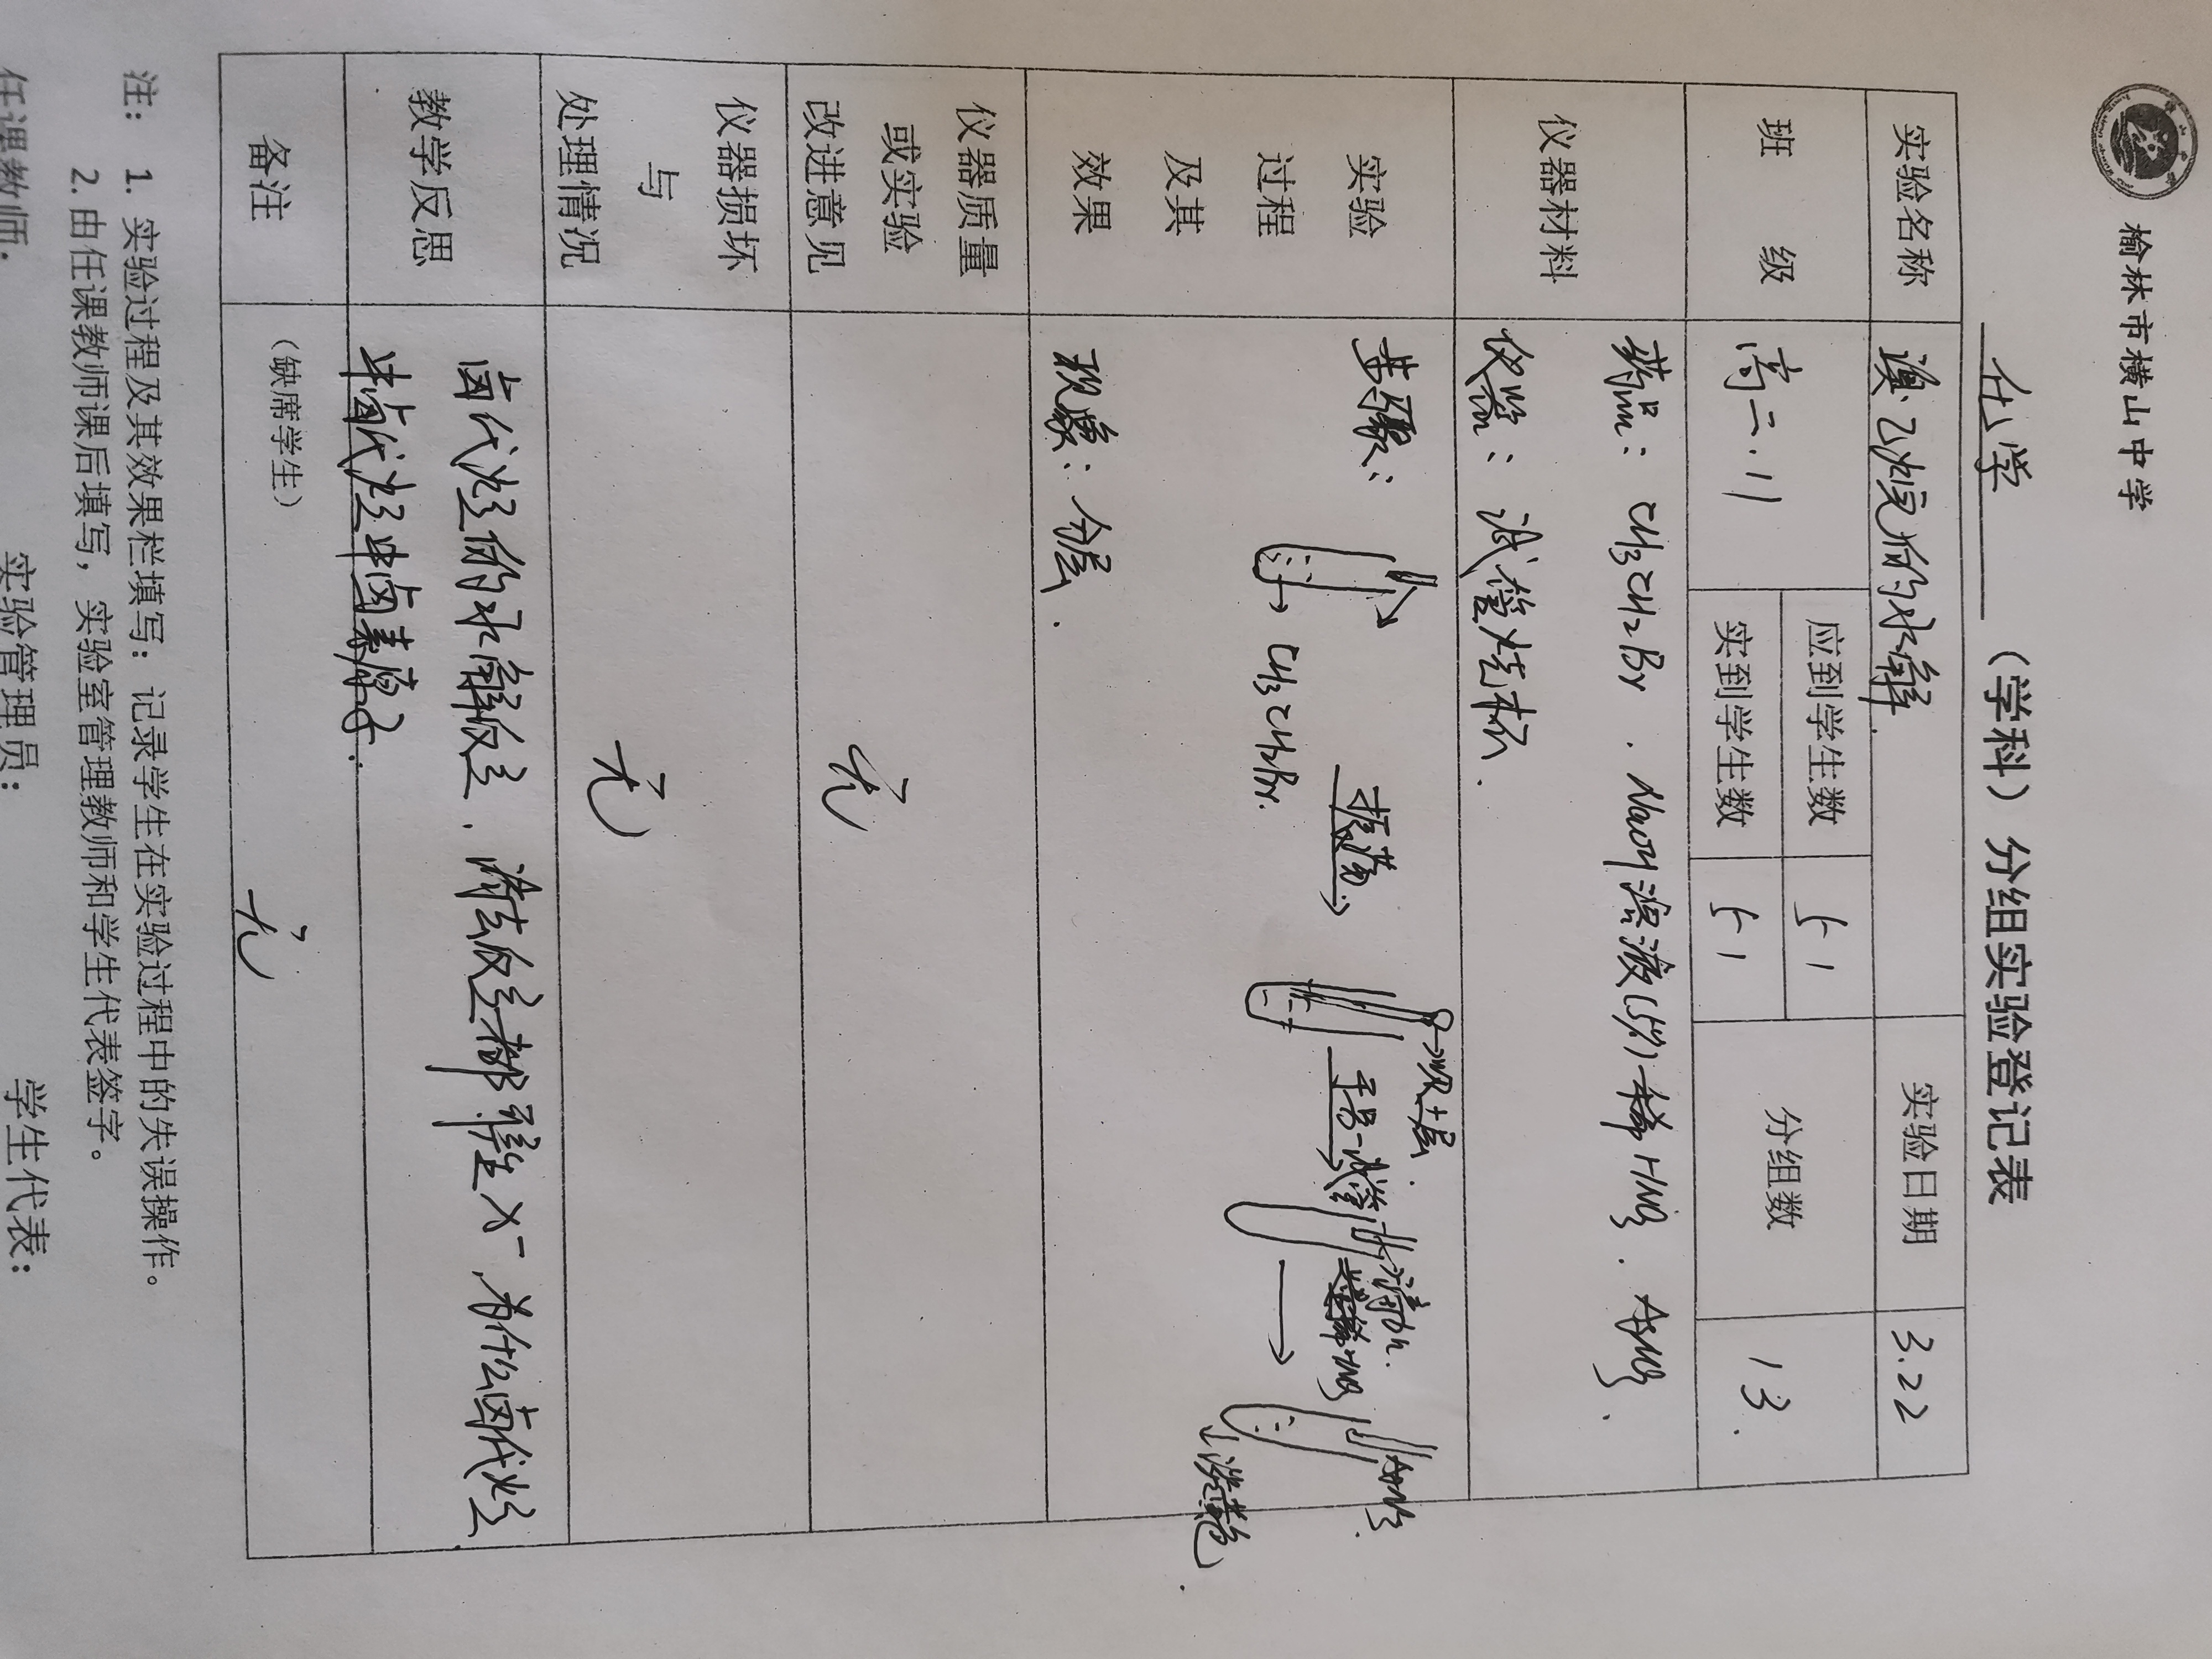 榆林市横山中学
化学（学科）分组实验登记表
实验名称 溴乙烷的水解. 实验日期 3.22
班 级 高二.11 应到学生数 51 分组数 13.
实到学生数 51
仪器材料 药品：CH3CH2Br . NaOH溶液(5%) 稀HNO3 . AgNO3 .
仪器：试管 烧杯 .
实验
过程
及其
效果
步骤：
→ CH3CH2Br.
振荡.
→取上层.
另一试管
稀HNO3
AgNO3.
↓淡黄色.
现象：分层.
仪器质量
或实验
改进意见
无
仪器损坏
与
处理情况
无
教学反思
卤代烃的水解反应 . 消去反应都产生X⁻, 为什么卤代烃
中卤代烃中卤素原子.
备注 （缺席学生） 无
注： 1. 实验过程及其效果栏填写：记录学生在实验过程中的失误操作。
2. 由任课教师课后填写，实验室管理教师和学生代表签字。
任课教师: 实验管理员： 学生代表：